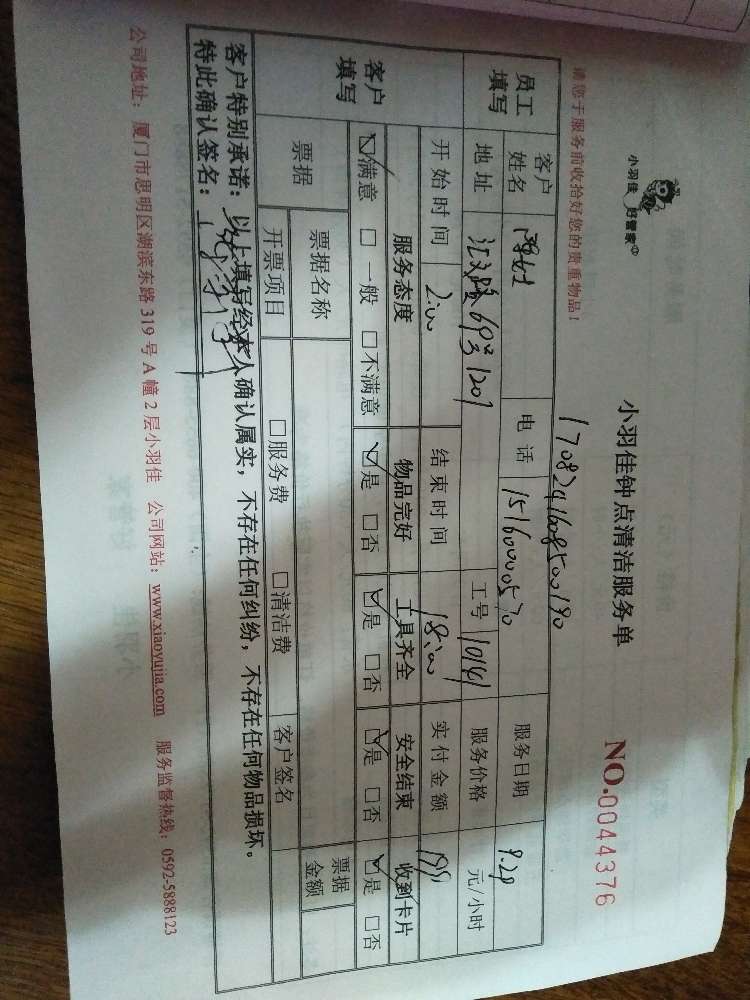 小羽佳 好管家
小羽佳钟点清洁服务单
NO.0044376
请您于服务前收拾好您的贵重物品！
1708291608500190
员工填写 客户姓名 电话 15160000570 服务日期 9.28
地址 69 1201 工号 10141 服务价格 元/小时
开始时间 2:00 结束时间 18:00 实付金额
客户填写 服务态度 物品完好 工具齐全 安全结束 收到卡片
☑满意 □一般 □不满意 ☑是 □否 ☑是 □否 ☑是 □否 ☑是 □否
票据 票据名称 客户签名 票据金额
开票项目 □服务费 □清洁费
客户特别承诺：以上填写经本人确认属实，不存在任何纠纷，不存在任何物品损坏。
特此确认签名：
公司地址：厦门市思明区湖滨东路319号A幢2层小羽佳 公司网站：www.xiaoyujia.com 服务监督热线：0592-5888123